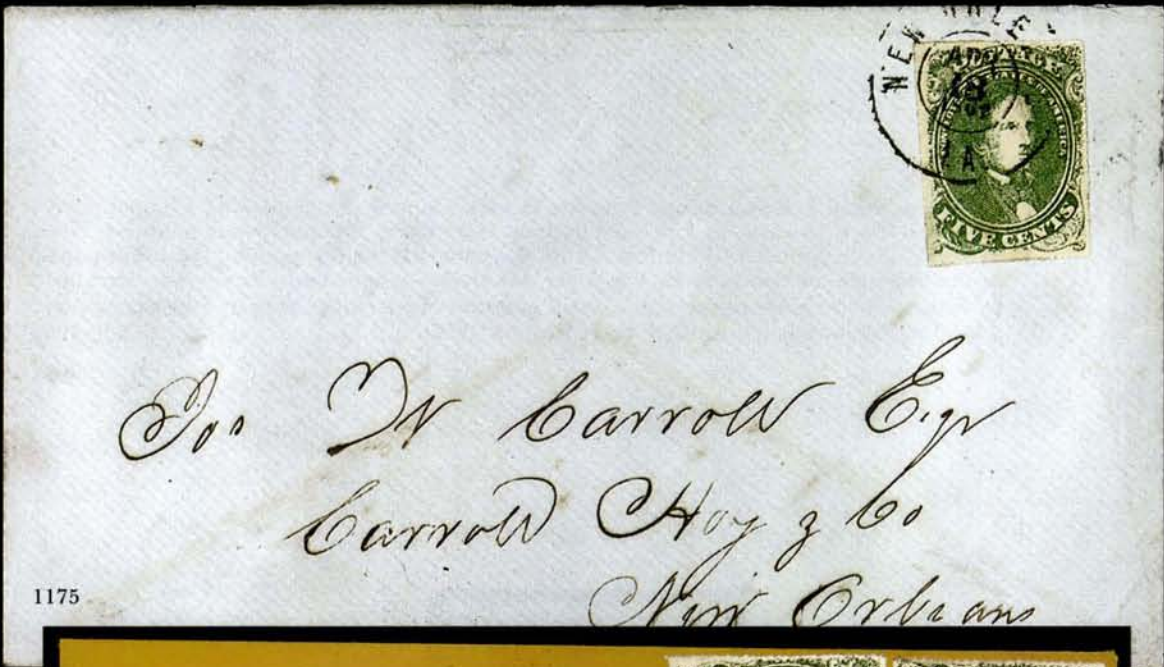 NEW ORLE
AP
LA
FIVE CENTS
Jos W Carroll Esqr
Carroll Hoy & Co
New Orleans
1175